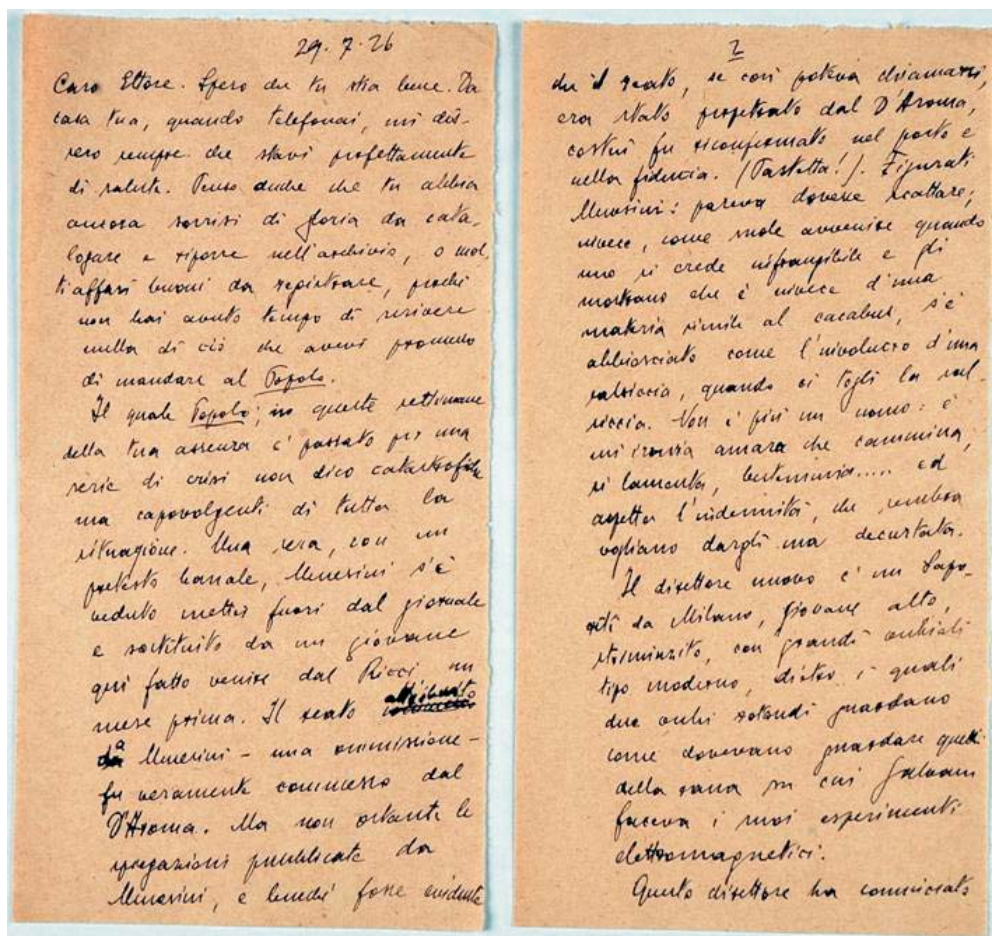 29.7.26
Caro Ettore. Spero che tu stia bene. Da
casa tua, quando telefonai, mi dis-
sero sempre che stavi perfettamente
di salute. Penso anche che tu abbia
ancora sorrisi di gloria da cata-
logare e riporre nell'archivio, o mol
ti affari buoni da registrare, poiché
non hai avuto tempo di scrivere
nulla di ciò che avevi promesso
di mandare al Popolo.
Il quale Popolo; in queste settimane
della tua assenza è passato per una
serie di crisi non dico catastrofiche
ma capovolgenti di tutta la
situazione. Una sera, con un
pretesto banale, Menesini s'è
veduto metter fuori dal giornale
e sostituito da un giovane
qui fatto venire dal Ricci un
mese prima. Il reato attribuito
a Menesini - una ommissione -
fu veramente commesso dal
D'Aroma. Ma non ostante le
spiegazioni pubblicate da
Menesini, e benché fosse evidente
2
che il reato, se così poteva chiamarsi,
era stato perpetrato dal D'Aroma,
costui fu riconfermato nel posto e
nella fiducia. (            !). Figurati
Menesini: pareva dovesse scattare;
invece, come suole avvenire quando
uno si crede infrangibile e gli
mostrano che è invece d'una
materia simile al            , s'è
abbiosciato come l'involucro d'una
salsiccia, quando ci togli la sal-
siccia. Non è più un uomo: è
un'ironia amara che cammina,
si lamenta, bestemmia..... ed
aspetta l'indennità, che sembra
vogliano dargli ma decurtata.
Il direttore nuovo è un Sapo-
riti da Milano, giovane alto,
sterminato, con grandi occhiali
tipo moderno, dietro i quali
due occhi rotondi guardano
come dovevano guardare quelli
della rana su cui Galvani
faceva i suoi esperimenti
elettromagnetici.
Questo direttore ha cominciato